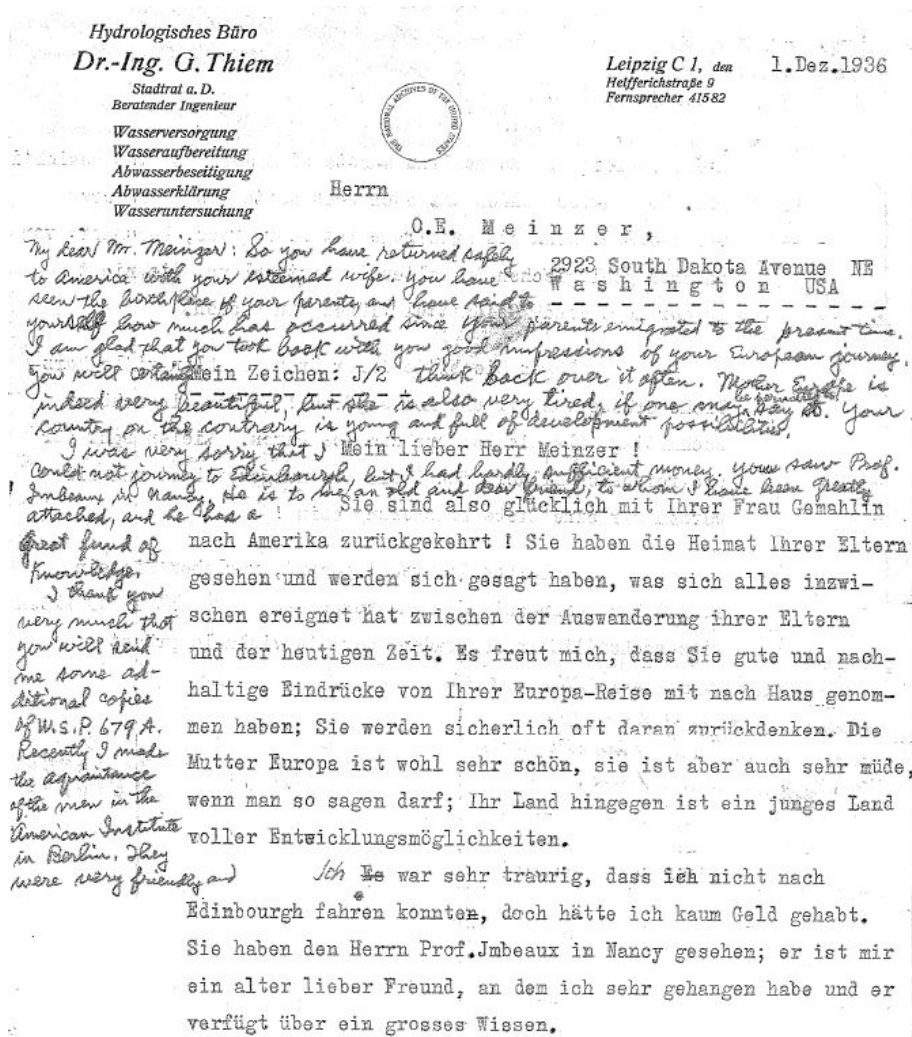 Hydrologisches Büro
Dr.-Ing. G. Thiem
Stadtrat a. D.
Beratender Ingenieur
Wasserversorgung
Wasseraufbereitung
Abwasserbeseitigung
Abwasserklärung
Wasseruntersuchung
THE NATIONAL ARCHIVES OF THE UNITED STATES
Leipzig C 1, den 1.Dez.1936
Helfferichstraße 9
Fernsprecher 41582
Herrn
O.E. Meinzer,
2923 South Dakota Avenue NE
Washington USA
My dear Mr. Meinzer: So you have returned safely
to America with your esteemed wife. You have
seen the birthplace of your parents, and have said to
yourself how much has occurred since your parents emigrated to the present time.
I am glad that you took back with you good impressions of your European journey.
You will certainly think back over it often. Mother Europe is
indeed very beautiful, but she is also very tired, if one may be permitted to say so. Your
country on the contrary is young and full of development possibilities.
I was very sorry that I
could not journey to Edinbourgh, but I had hardly sufficient money. You saw Prof.
Imbeaux in Nancy. He is to me an old and dear friend, to whom I have been greatly
attached, and he has a
great fund of
knowledge.
I thank you
very much that
you will send
me some ad-
ditional copies
of W.S.P. 679A.
Recently I made
the aquaintance
of the men in the
American Institute
in Berlin. They
were very friendly and
Mein Zeichen: J/2
Mein lieber Herr Meinzer !
Sie sind also glücklich mit Ihrer Frau Gemahlin
nach Amerika zurückgekehrt ! Sie haben die Heimat Ihrer Eltern
gesehen und werden sich gesagt haben, was sich alles inzwi-
schen ereignet hat zwischen der Auswanderung ihrer Eltern
und der heutigen Zeit. Es freut mich, dass Sie gute und nach-
haltige Eindrücke von Ihrer Europa-Reise mit nach Haus genom-
men haben; Sie werden sicherlich oft daran zurückdenken. Die
Mutter Europa ist wohl sehr schön, sie ist aber auch sehr müde,
wenn man so sagen darf; Ihr Land hingegen ist ein junges Land
voller Entwicklungsmöglichkeiten.
Ich Es war sehr traurig, dass ich nicht nach
Edinbourgh fahren konnten, doch hätte ich kaum Geld gehabt.
Sie haben den Herrn Prof.Jmbeaux in Nancy gesehen; er ist mir
ein alter lieber Freund, an dem ich sehr gehangen habe und er
verfügt über ein grosses Wissen.